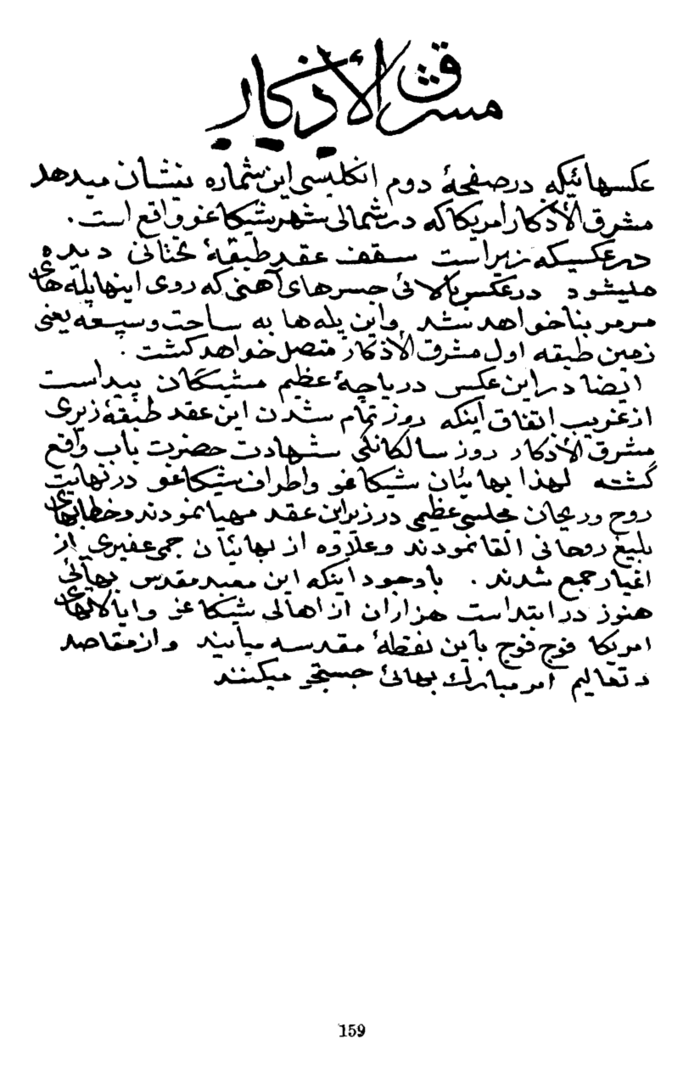 مشرق الأذكار
عکسهائیکه در صفحۀ دوم انگلیسی این شماره نشان میدهد
مشرق الأذکار امریکا که در شمالی شهر شیکاغو واقع است.
در عکسیکه زیر است سقف عقد طبقۀ تحتانی دیده
میشود در عکس بالائی جسرهای آهنی که روی اینها پله های
مرمر بنا خواهد شد واین پله ها به ساحت وسیعه یعنی
زمین طبقه اول مشرق الأذکار متصل خواهد گشت.
ایضا در این عکس دریاچۀ عظیم مشیگان پیداست
از غریب اتفاق اینکه روز تمام شدن این عقد طبقۀ زیری
مشرق الأذکار روز سالگانگی شهادت حضرت باب واقع
گشته لهذا بهائیان شیکاغو واطراف شیکاغو در نهایت
روح وریحان مجلسی عظیمی در زیر این عقد مهیا نمودند وخطابهای
بلیغ روحانی القا نمودند وعلاوه از بهائیان جمی غفیری از
اغیار جمع شدند. باوجود اینکه این معبد مقدس بهائی
هنوز در ابتداست هزاران از اهالی شیکاغو وایالاتهای
امریکا فوج فوج باین نقطۀ مقدسه میآیند واز مقاصد
و تعالیم امر مبارک بهائی جستجو میکنند
159